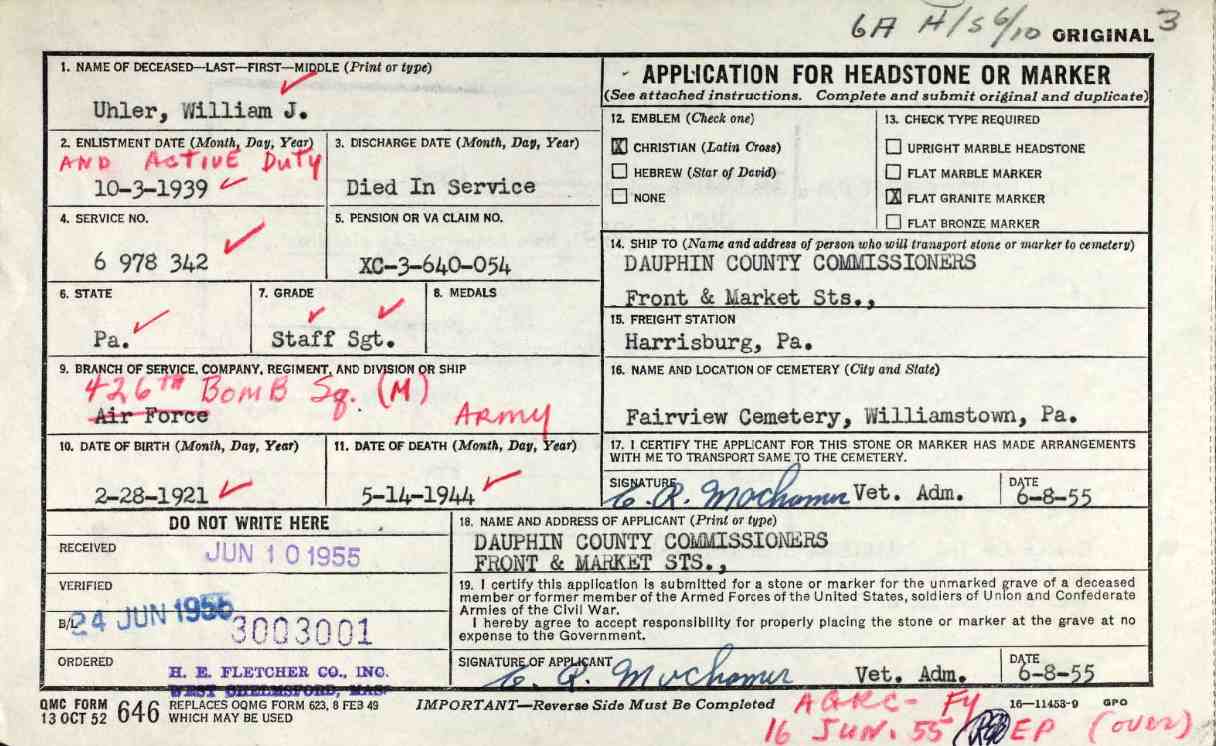 6A H/S 6/10 ORIGINAL 3
1. NAME OF DECEASED—LAST—FIRST—MIDDLE (Print or type)
Uhler, William J.
2. ENLISTMENT DATE (Month, Day, Year)
AND ACTIVE DUTY
10-3-1939
3. DISCHARGE DATE (Month, Day, Year)
Died In Service
4. SERVICE NO.
6 978 342
5. PENSION OR VA CLAIM NO.
XC-3-640-054
6. STATE
Pa.
7. GRADE
Staff Sgt.
8. MEDALS
9. BRANCH OF SERVICE, COMPANY, REGIMENT, AND DIVISION OR SHIP
426TH BOMB Sq. (M)
Air Force
ARMY
10. DATE OF BIRTH (Month, Day, Year)
2-28-1921
11. DATE OF DEATH (Month, Day, Year)
5-14-1944
APPLICATION FOR HEADSTONE OR MARKER
(See attached instructions. Complete and submit original and duplicate)
12. EMBLEM (Check one)
X CHRISTIAN (Latin Cross)
HEBREW (Star of David)
NONE
13. CHECK TYPE REQUIRED
UPRIGHT MARBLE HEADSTONE
FLAT MARBLE MARKER
X FLAT GRANITE MARKER
FLAT BRONZE MARKER
14. SHIP TO (Name and address of person who will transport stone or marker to cemetery)
DAUPHIN COUNTY COMMISSIONERS
Front & Market Sts.,
15. FREIGHT STATION
Harrisburg, Pa.
16. NAME AND LOCATION OF CEMETERY (City and State)
Fairview Cemetery, Williamstown, Pa.
17. I CERTIFY THE APPLICANT FOR THIS STONE OR MARKER HAS MADE ARRANGEMENTS
WITH ME TO TRANSPORT SAME TO THE CEMETERY.
SIGNATURE
Vet. Adm.
DATE
6-8-55
DO NOT WRITE HERE
RECEIVED
JUN 10 1955
VERIFIED
24 JUN 1955
B/L
3003001
ORDERED
H. E. FLETCHER CO., INC.
WEST CHELMSFORD, MASS
18. NAME AND ADDRESS OF APPLICANT (Print or type)
DAUPHIN COUNTY COMMISSIONERS
FRONT & MARKET STS.,
19. I certify this application is submitted for a stone or marker for the unmarked grave of a deceased
member or former member of the Armed Forces of the United States, soldiers of Union and Confederate
Armies of the Civil War.
I hereby agree to accept responsibility for properly placing the stone or marker at the grave at no
expense to the Government.
SIGNATURE OF APPLICANT
Vet. Adm.
DATE
6-8-55
QMC FORM
13 OCT 52 646
REPLACES OQMG FORM 623, 8 FEB 49
WHICH MAY BE USED
IMPORTANT—Reverse Side Must Be Completed
16—11453-9 GPO
AGRC- Fy
16 JUN. 55 EP (over)